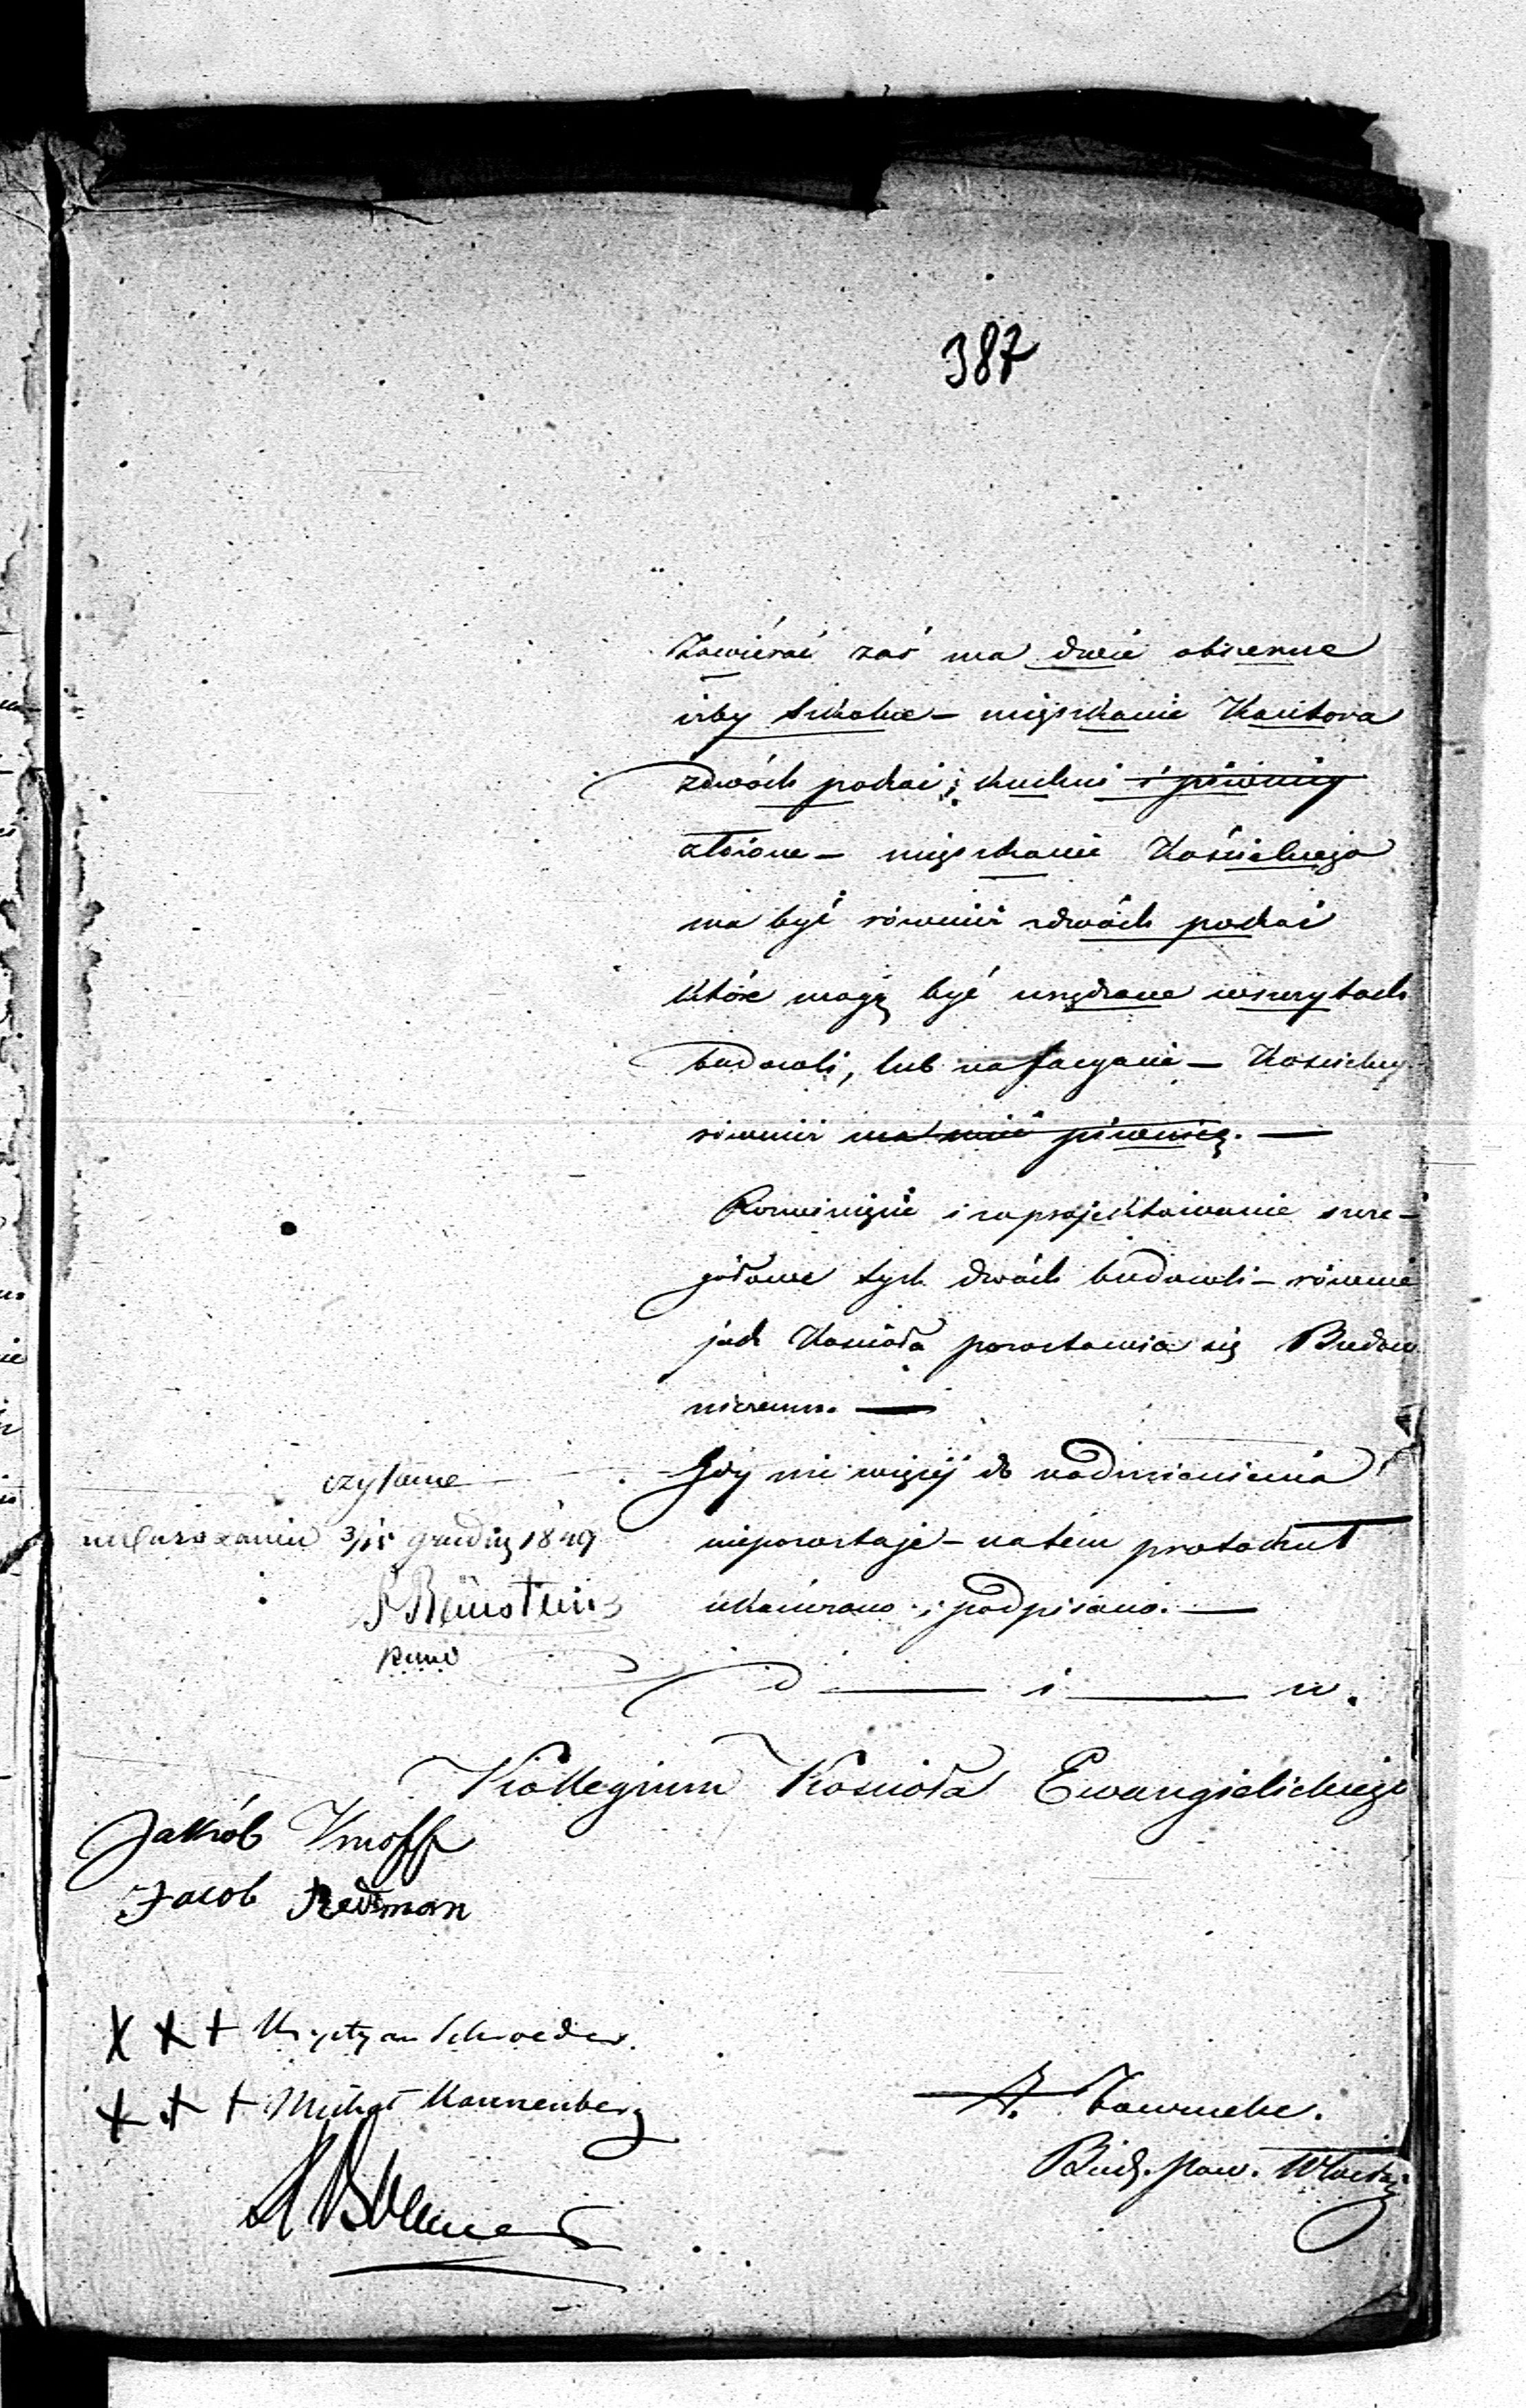 387
Zawiérać zaś ma dwie obszerne
izby szkolne – mięszkanie Kantora
z dwóch pokoi, kuchni i piwnicy
złożone – mięszkanie Kościelnego
ma być również z dwóch pokoi
które mogą być urządzone w szczytach
budowli, lub na facyacie – Kościelny
również ma mieć piwnicę. —
Rozwinięcie i zaprojektowanie szcze-
gółowe tych dwóch budowli – równie
jak Kościoła pozostawia się Budow
niczemu. —
Gdy nic więcéj do nadmienienia
niepozostaje – na tém protokuł
ukończono i podpisano. —
d — i — w.
czytane
3/15 grudnia 1849
Kollegium Kościoła Ewangielickiego
Jakób Knoff
Jacob Redman
X X + Krystyan Schroeder.
X X + Michał Kannenberg
Bud. pow. Włocł